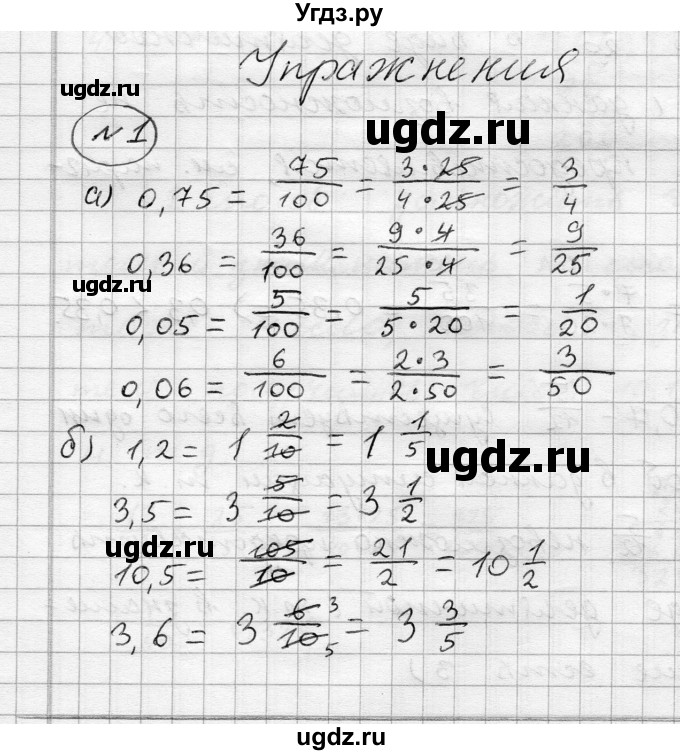 Угдз.ру
Упражнения
ugdz.ru
ugdz.ru
№1
а) 0,75 = 75/100 = 3·25/4·25 = 3/4
0,36 = 36/100 = 9·4/25·4 = 9/25
ugdz.ru
0,05 = 5/100 = 5/5·20 = 1/20
0,06 = 6/100 = 2·3/2·50 = 3/50
б) 1,2 = 1 2/10 = 1 1/5
ugdz.ru
3,5 = 3 5/10 = 3 1/2
ugdz.ru
10,5 = 105/10 = 21/2 = 10 1/2
3,6 = 3 6/10 3 5 = 3 3/5
ugdz.ru